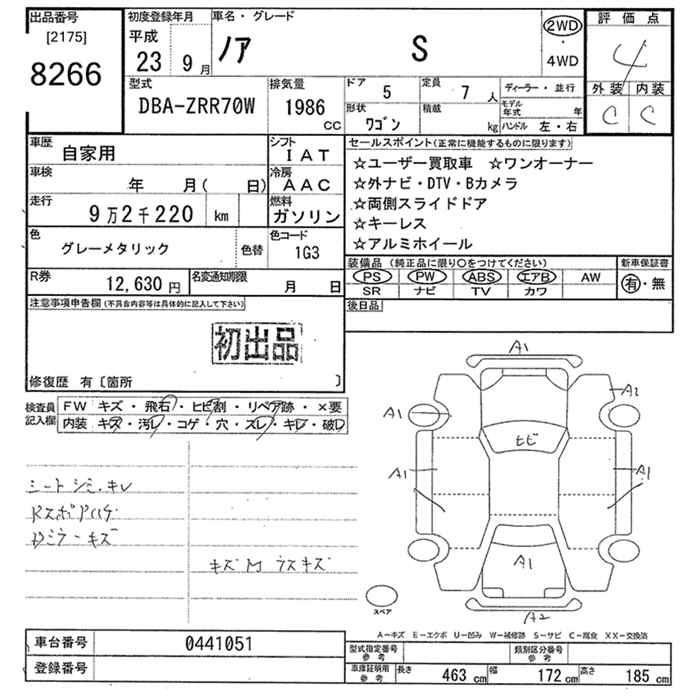 出品番号
[2175]
8266
初度登録年月
平成
23 9 月
車名・グレード
ノア S
2WD
・
4WD
評価点
4
外装 内装
C C
型式
DBA-ZRR70W
排気量
1986 CC
ドア
5
定員
7 人
形状
ワゴン
積載
kg
ディーラー・並行
モデル年式 年
ハンドル 左・右
車歴
自家用
シフト
IAT
車検
年 月( 日)
冷房
AAC
走行
9万2千220 km
燃料
ガソリン
色
グレーメタリック
色替
色コード
1G3
R券
12,630 円
名変通知期限
月 日
セールスポイント(正常に機能するものに限ります)
☆ユーザー買取車 ☆ワンオーナー
☆外ナビ・DTV・Bカメラ
☆両側スライドドア
☆キーレス
☆アルミホイール
装備品 (純正品に限り〇をつけてください)
PS PW ABS エアB AW
SR ナビ TV カワ
新車保証書
有・無
後日品
注意事項申告欄(不具合内容等は具体的に記入して下さい)
初出品
修復歴 有〔箇所 〕
検査員記入欄
FW キズ・飛石・ヒビ割・リペア跡・×要
内装 キズ・汚レ・コゲ・穴・ズレ・キレ・破レ
シート シミ・キレ
キズ M ラスキズ
A1
A1
A2
ヒビ
A1
A1
A1
A2
スペア
A－キズ E－エクボ U－凹み W－補修跡 S－サビ C－腐食 XX－交換済
車台番号
0441051
登録番号
型式指定番号
参考
類別区分番号
参考
車庫証明用
参考
長さ 463 cm 幅 172 cm 高さ 185 cm